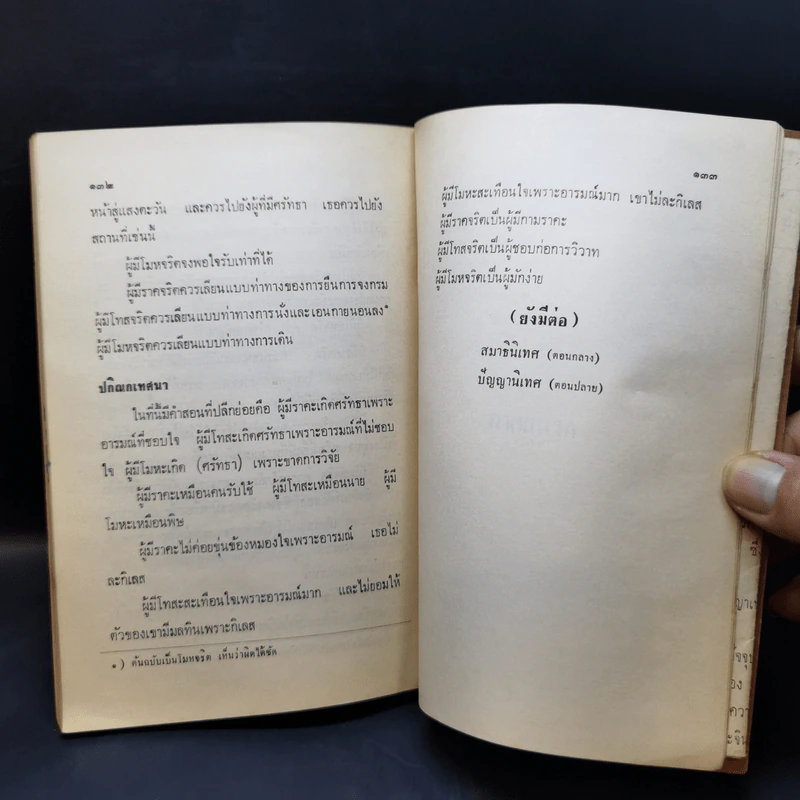 ๑๓๒
หน้าสู่แสงตะวัน และควรไปยังผู้ที่มีศรัทธา เธอควรไปยัง
สถานที่เช่นนี้
ผู้มีโมหจริตจงพอใจรับเท่าที่ได้
ผู้มีราคจริตควรเลียนแบบท่าทางของการยืนการจงกรม
ผู้มีโทสจริตควรเลียนแบบท่าทางการนั่งและเอนกายนอนลง๑
ผู้มีโมหจริตควรเลียนแบบท่าทางการเดิน
ปกิณกเทศนา
ในที่นี้มีคำสอนที่ปลีกย่อยคือ ผู้มีราคะเกิดศรัทธาเพราะ
อารมณ์ที่ชอบใจ ผู้มีโทสะเกิดศรัทธาเพราะอารมณ์ที่ไม่ชอบ
ใจ ผู้มีโมหะเกิด (ศรัทธา) เพราะขาดการวิจัย
ผู้มีราคะเหมือนคนรับใช้ ผู้มีโทสะเหมือนนาย ผู้มี
โมหะเหมือนพิษ
ผู้มีราคะไม่ค่อยขุ่นข้องหมองใจเพราะอารมณ์ เธอไม่
ละกิเลส
ผู้มีโทสะสะเทือนใจเพราะอารมณ์มาก และไม่ยอมให้
ตัวของเขามีมลทินเพราะกิเลส
๑) ต้นฉบับเป็นโมหจริต เห็นว่าผิดได้ชัด
๑๓๓
ผู้มีโมหะสะเทือนใจเพราะอารมณ์มาก เขาไม่ละกิเลส
ผู้มีราคจริตเป็นผู้มีกามราคะ
ผู้มีโทสจริตเป็นผู้ชอบก่อการวิวาท
ผู้มีโมหจริตเป็นผู้มักง่าย
(ยังมีต่อ)
สมาธินิเทศ (ตอนกลาง)
ปัญญานิเทศ (ตอนปลาย)